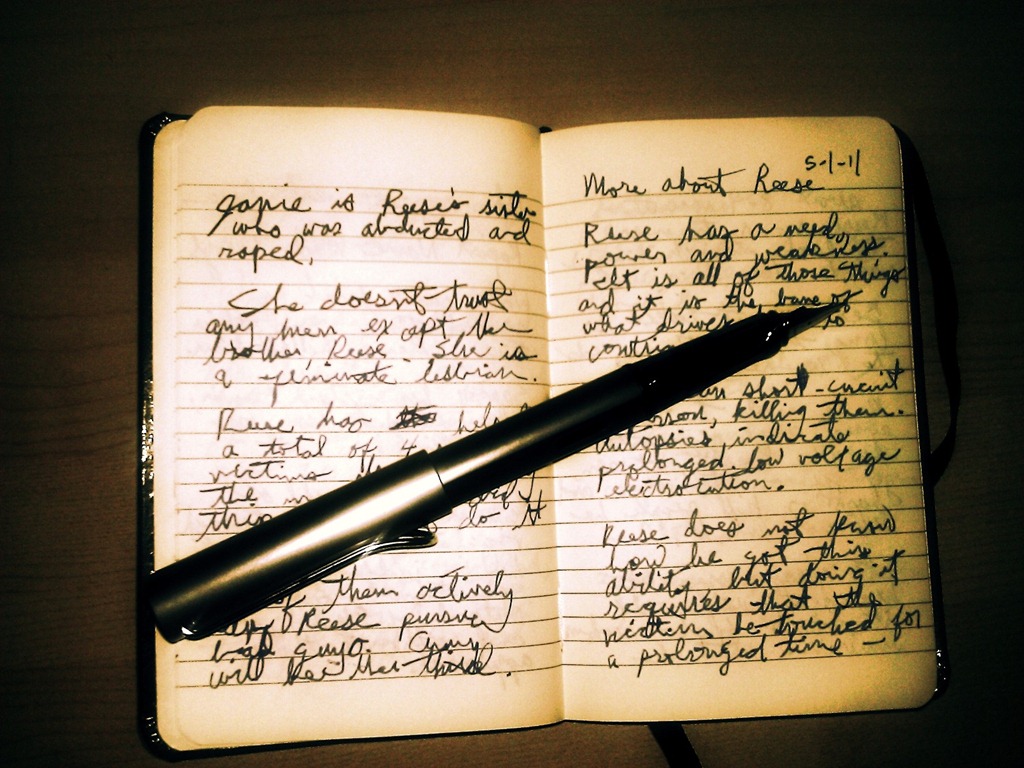 is Reese's sister
who was abducted and
raped.
She doesn't trust
any men except her
brother, Reese. She is
a feminate lesbian.
Reese has help
a total of 4
victims
the
do it
of them actively
Reese pursue
bad guys. Amy
will be her third.
5-1-11
More about Reese
Reese has a need,
power and weakness.
It is all of those things
and it is the bane of
what drives to
short-circuit
person, killing them.
Autopsies indicate
prolonged low voltage
electrocution.
Reese does not know
how he got this
ability, but doing it
requires that the
victim be touched for
a prolonged time -